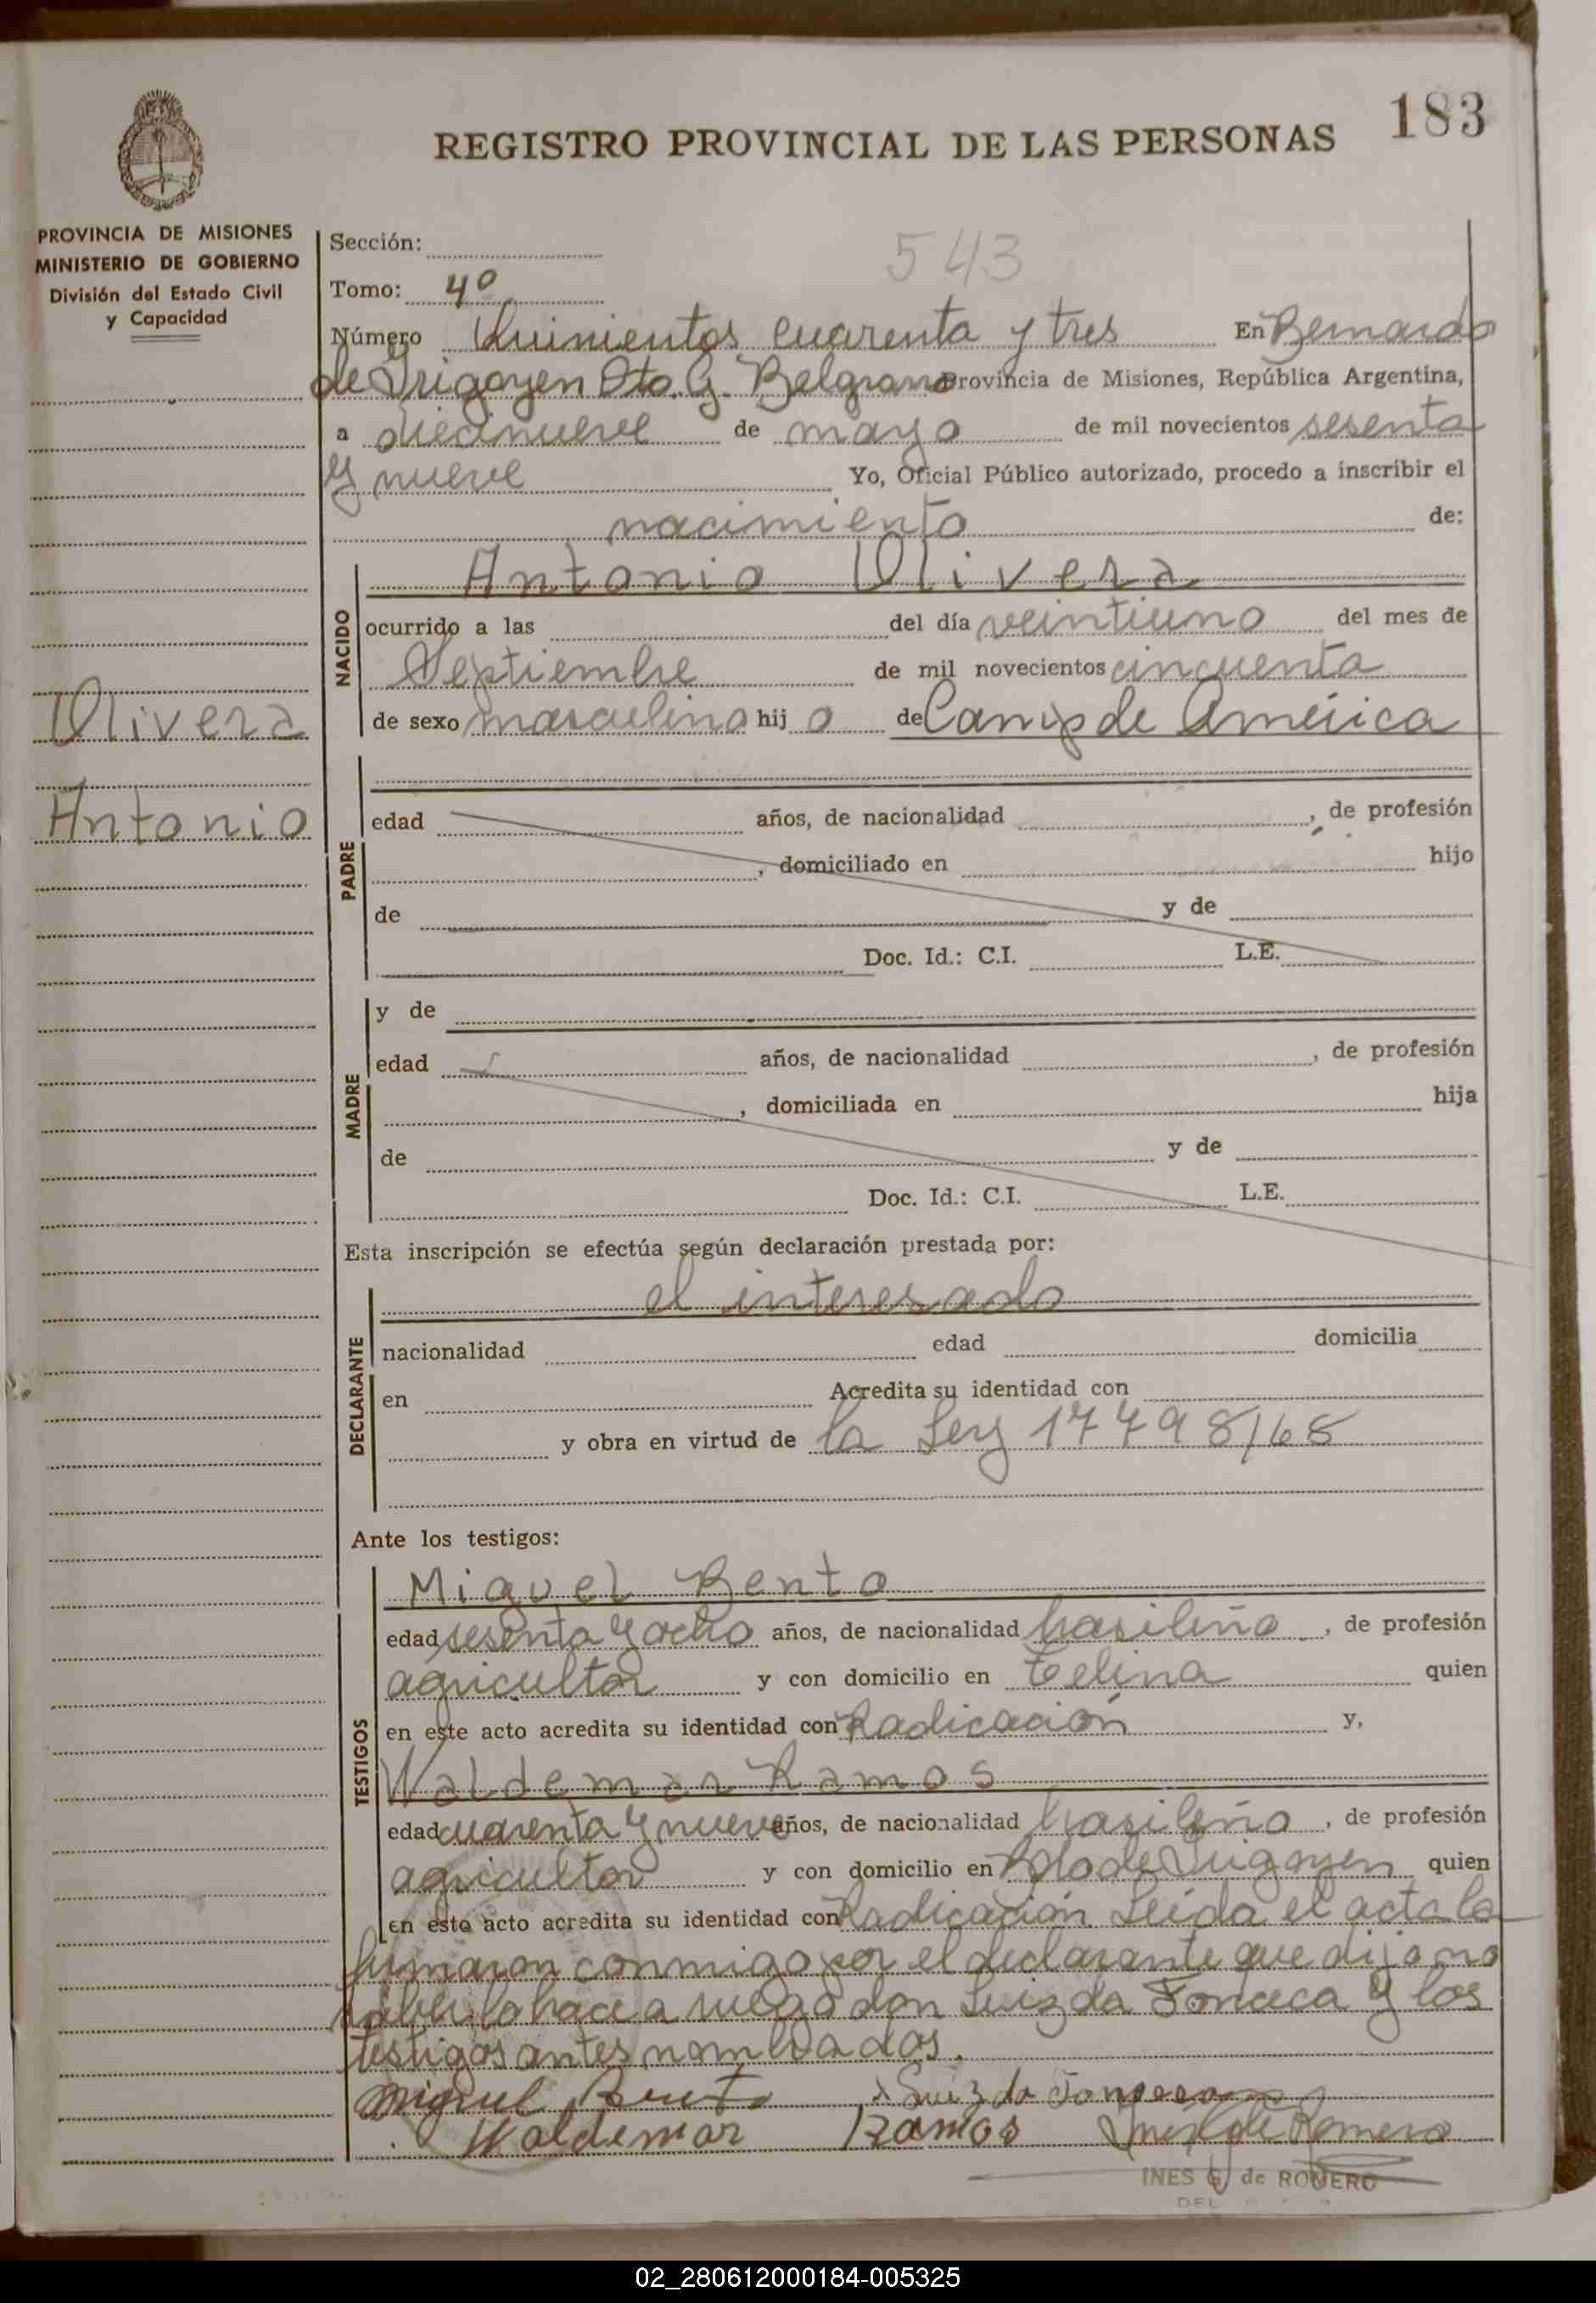 183
REGISTRO PROVINCIAL DE LAS PERSONAS
PROVINCIA DE MISIONES
MINISTERIO DE GOBIERNO
División del Estado Civil
y Capacidad
Sección:
543
Tomo: 4º
Número Quinientos cuarenta y tres En Bernardo
de Irigoyen Dto. G. Belgrano Provincia de Misiones, República Argentina,
a diecinueve de mayo de mil novecientos sesenta
y nueve Yo, Oficial Público autorizado, procedo a inscribir el
nacimiento de:
Antonio Olivera
NACIDO
ocurrido a las del día veintiuno del mes de
Septiembre de mil novecientos cincuenta
Olivera
de sexo masculino hijo de Camp de América
Antonio
PADRE
edad años, de nacionalidad , de profesión
, domiciliado en hijo
de y de
Doc. Id.: C.I. L.E.
MADRE
y de
edad años, de nacionalidad , de profesión
, domiciliada en hija
de y de
Doc. Id.: C.I. L.E.
Esta inscripción se efectúa según declaración prestada por:
el interesado
DECLARANTE
nacionalidad edad domicilia
en Acredita su identidad con
y obra en virtud de la Ley 17798/68
Ante los testigos:
Miguel Bento
TESTIGOS
edad sesenta y ocho años, de nacionalidad brasileño , de profesión
agricultor y con domicilio en Celina quien
en este acto acredita su identidad con Radicación y,
Waldemar Ramos
edad cuarenta y nueve años, de nacionalidad brasileño , de profesión
agricultor y con domicilio en Bdo de Irigoyen quien
en este acto acredita su identidad con Radicación Leída el acta la
firmaron conmigo por el declarante que dijo no
saber lo hace a ruego don Luiz da Fonceca y los
testigos antes nombrados.
Miguel Bento Luiz da Fonceca
Waldemar Ramos Ines G de Romero
INES G de ROMERO
DEL
02_280612000184-005325